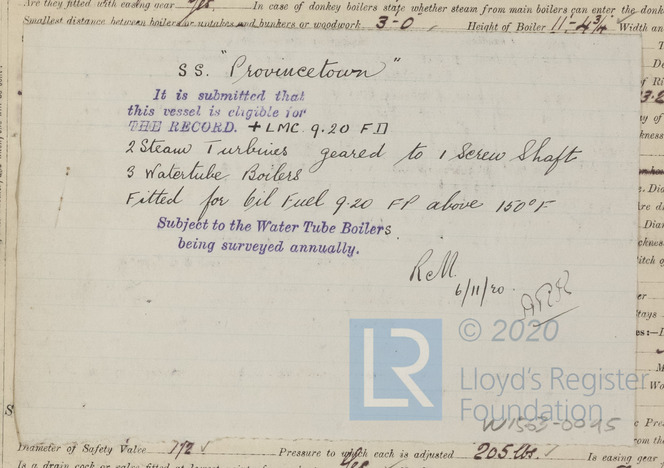 Are they fitted with easing gear yes In case of donkey boilers state whether steam from main boilers can enter the donk
Smallest distance between boilers or uptakes and bunkers or woodwork 3'-0" Height of Boiler 11'-4¾" Width an
SS. "Provincetown"
It is submitted that
this vessel is eligible for
THE RECORD. + LMC. 9.20 F.D
2 Steam Turbines geared to 1 Screw Shaft
3 Watertube Boilers
Fitted for Oil Fuel 9.20 FP above 150°F
Subject to the Water Tube Boilers
being surveyed annually.
6/11/20
LR
© 2020
Lloyd's Register
Foundation
W1553-0095
Diameter of Safety Valve Pressure to which each is adjusted 205 lbs. Is easing gear